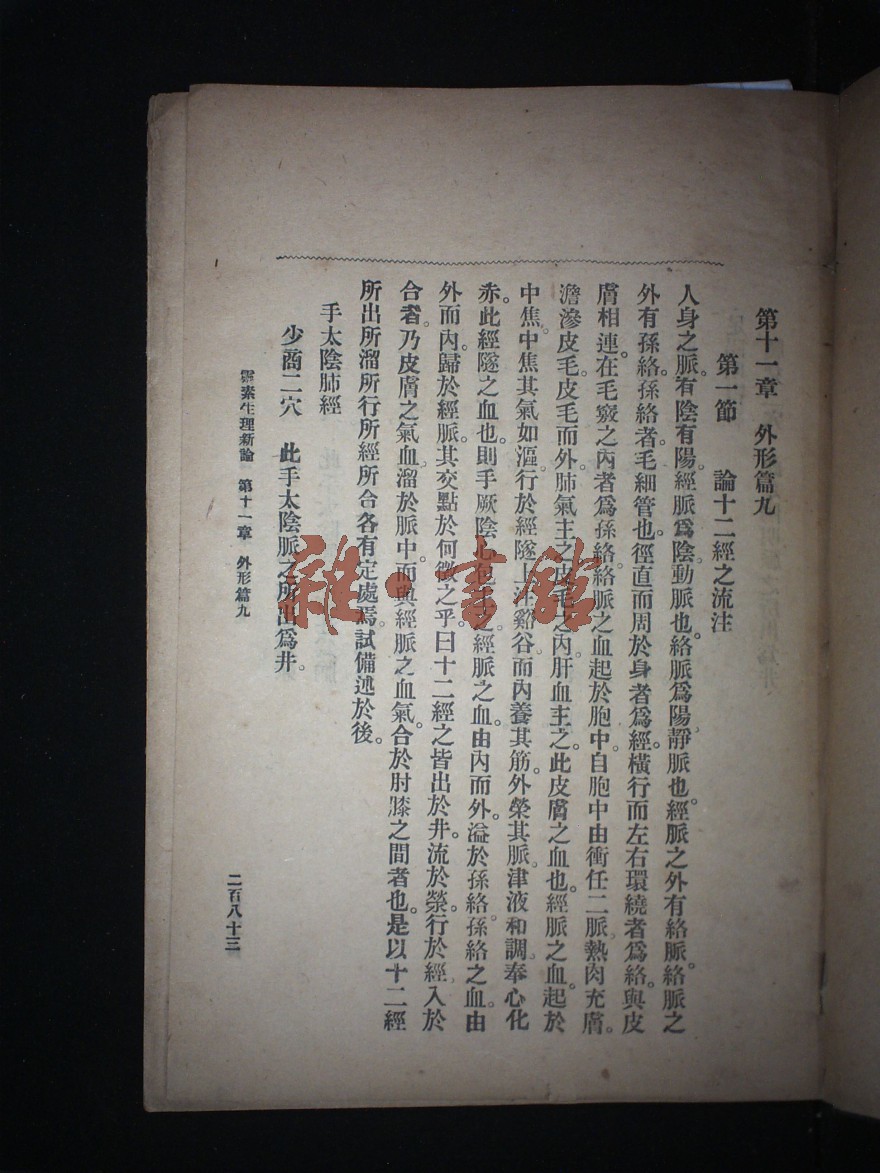 第十一章　外形篇九
第一節　論十二經之流注
人身之脈。有陰有陽。經脈爲陰。動脈也。絡脈爲陽。靜脈也。經脈之外有絡脈。絡脈之
外有孫絡。孫絡者。毛細管也。徑直而周於身者爲經。橫行而左右環繞者爲絡。與皮
膚相連。在毛竅之內者爲孫絡。絡脈之血。起於胞中。自胞中由衝任二脈。熱肉充膚。
澹滲皮毛。皮毛而外。肺氣主之。皮毛之內。肝血主之。此皮膚之血也。經脈之血。起於
中焦。中焦其氣如漚。行於經隧。上注谿谷。而內養其筋。外榮其脈。津液和調。奉心化
赤。此經隧之血也。則手厥陰心包主之。經脈之血。由內而外。溢於孫絡。孫絡之血。由
外而內。歸於經脈。其交點於何徵之乎。曰十二經之皆出於井。流於滎。行於經。入於
合者。乃皮膚之氣血。溜於脈中。而與經脈之血氣。合於肘膝之間者也。是以十二經
所出所溜所行所經所合各有定處焉。試備述於後。
手太陰肺經
少商二穴　此手太陰脈之所出爲井。
靈素生理新論　第十一章　外形篇九
二百八十三
雜·書館